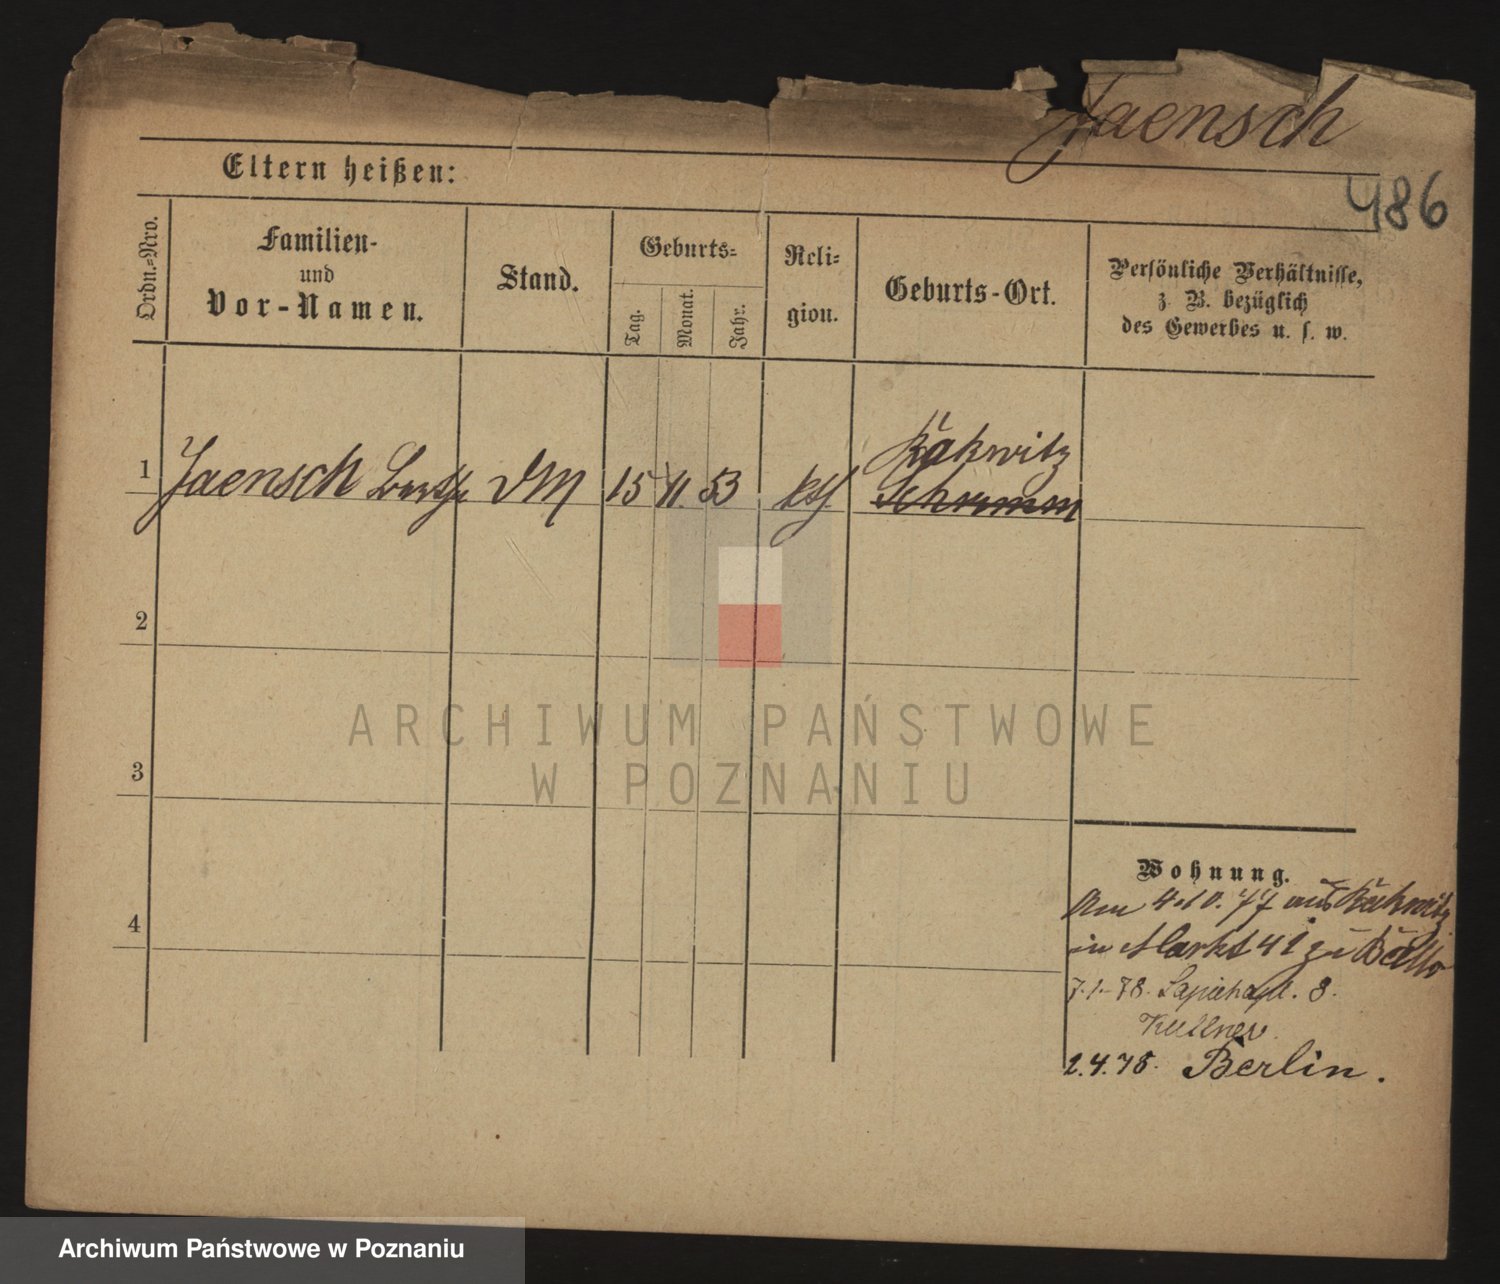 Jaensch
486
Eltern heißen:
Ordn.-Nro.
Familien-
und
Vor-Namen.
Stand.
Geburts-
Tag.
Monat.
Jahr.
Reli-
gion.
Geburts-Ort.
Persönliche Verhältnisse,
z. B. bezüglich
des Gewerbes u. s. w.
Räkwitz
1 Jaensch Bertha DM 15 11. 53 kth. Schrimm
2
3
4
ARCHIWUM PAŃSTWOWE
W POZNANIU
Wohnung.
Am 4.10.77 aus
in Markt 41 zu
7.1.78. 8.
Kellner
2.4.78. Berlin.
Archiwum Państwowe w Poznaniu